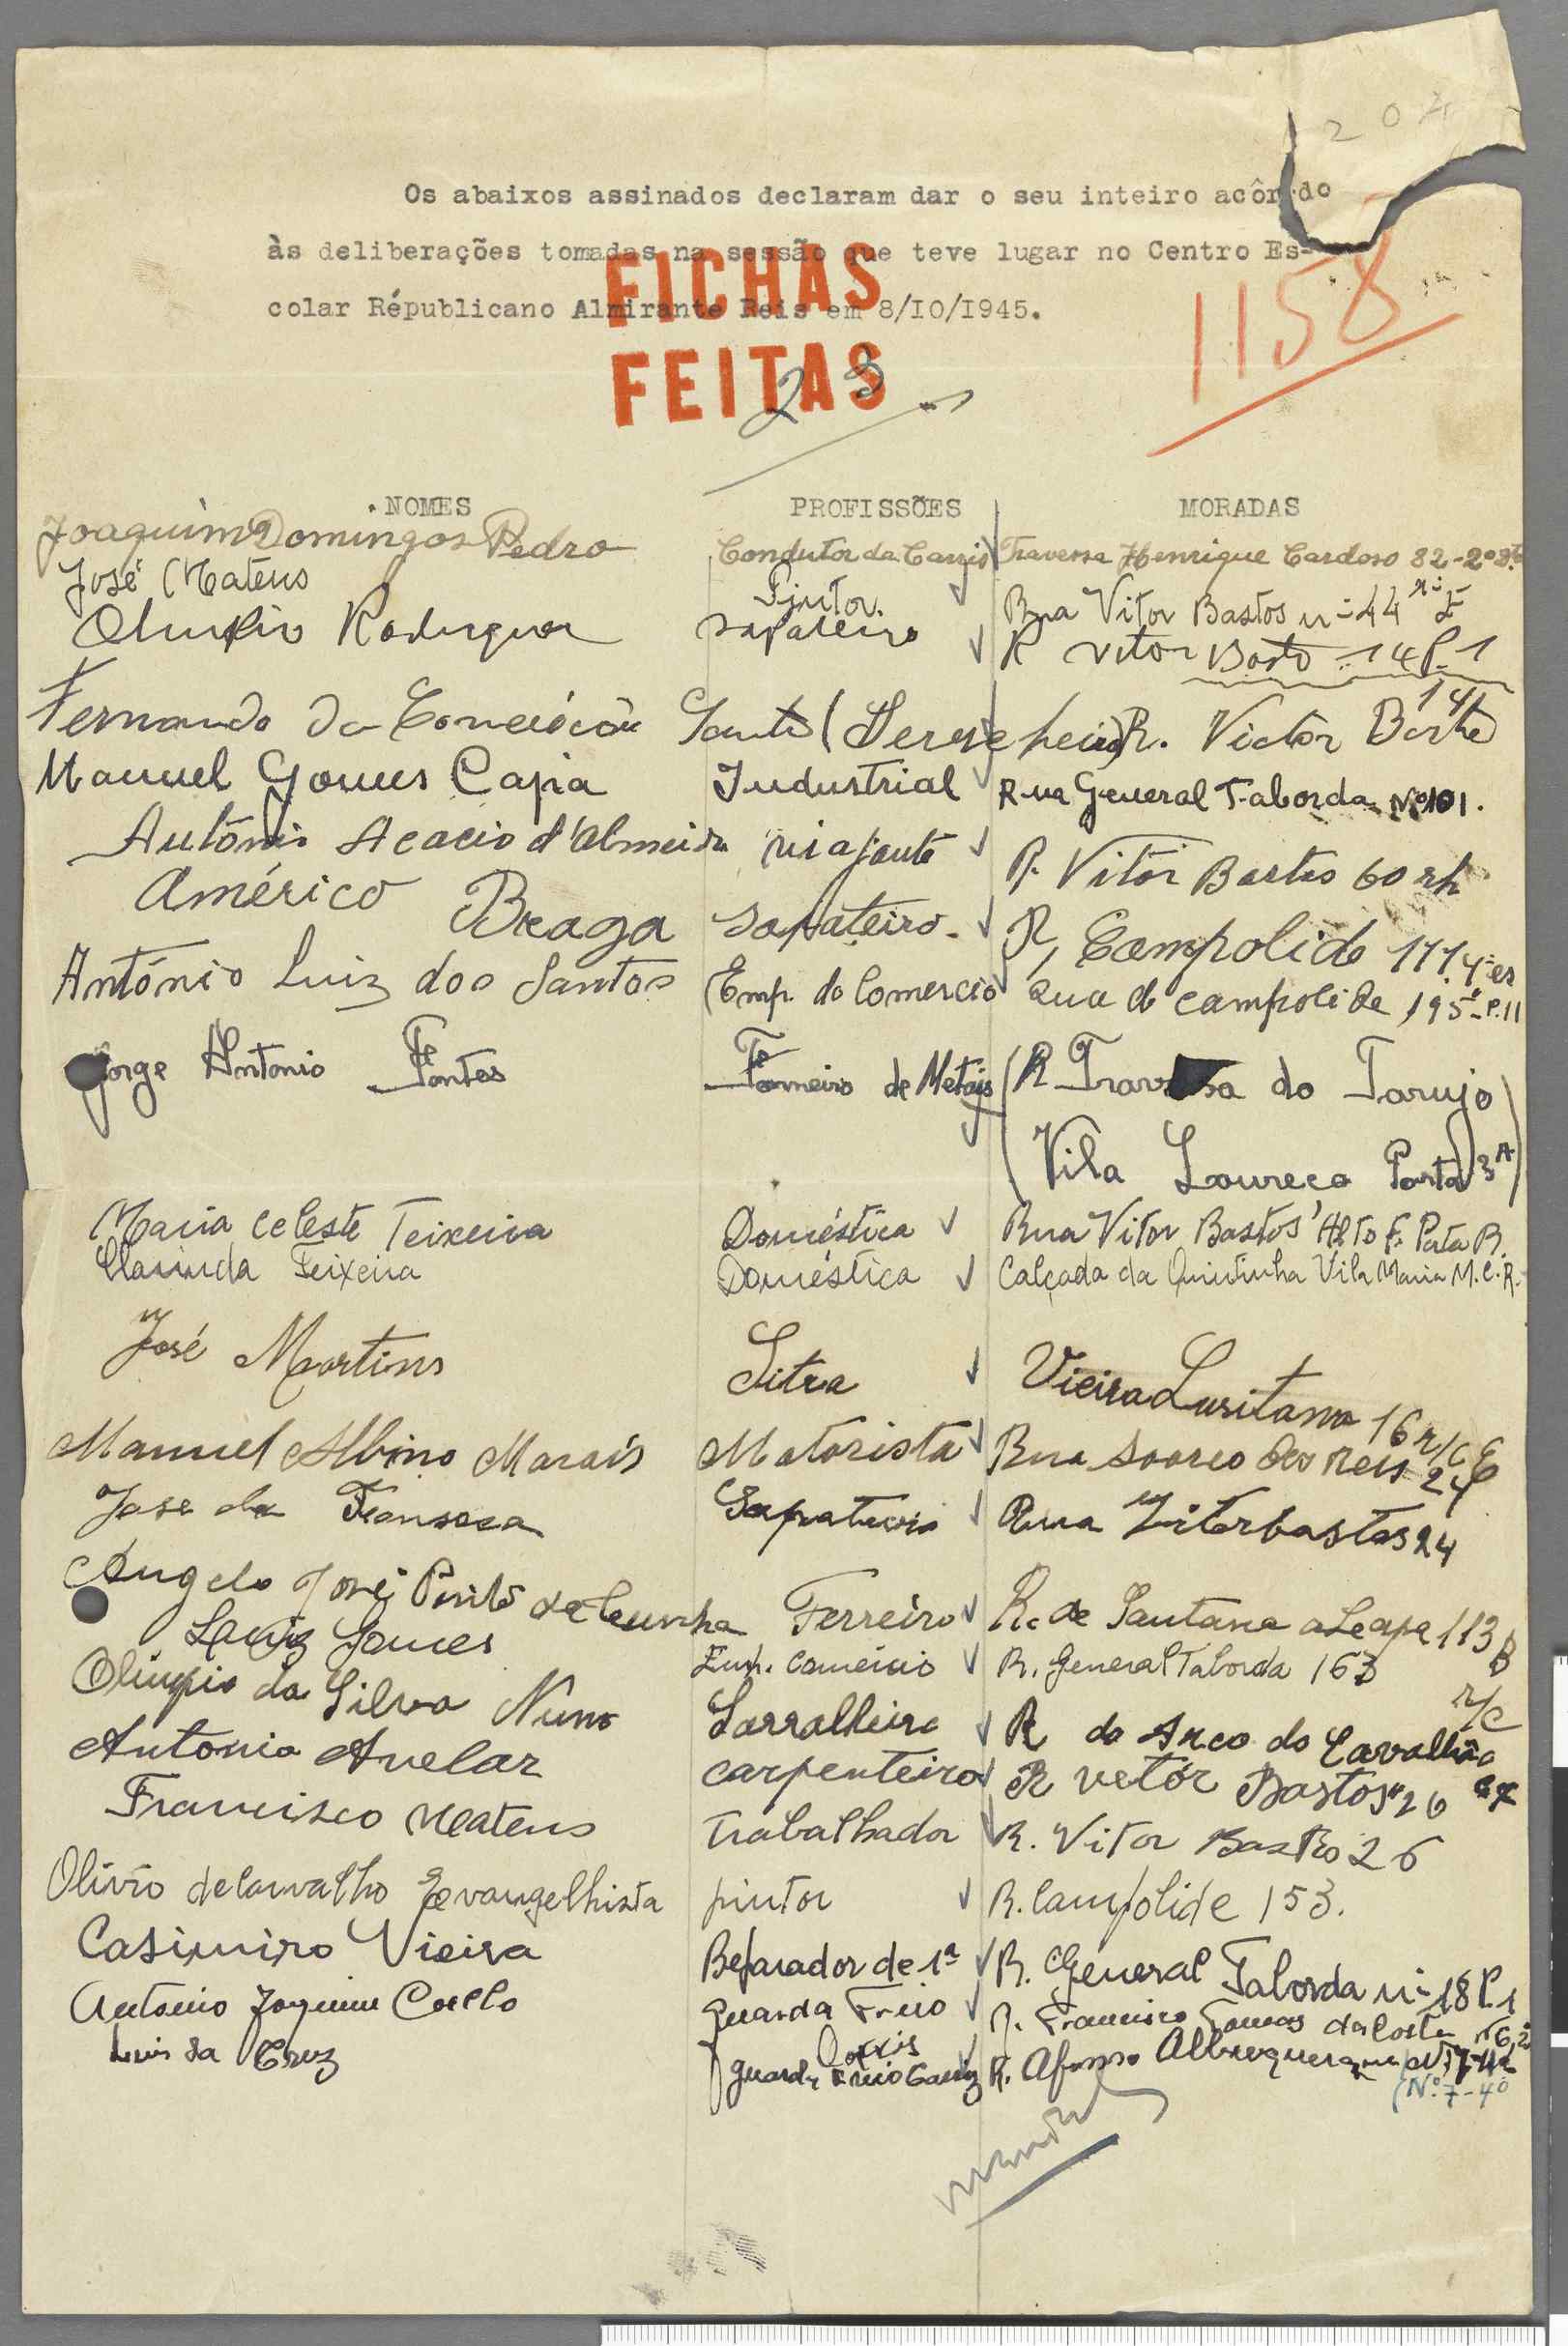 204
Os abaixos assinados declaram dar o seu inteiro acôrdo
às deliberações tomadas na sessão que teve lugar no Centro Es-
colar Républicano Almirante Reis em 8/IO/I945.
FICHAS
FEITAS
1158
23
NOMES PROFISSÕES MORADAS
Joaquim Domingos Pedro Condutor da Carris Travessa Henrique Cardoso 82-2º
José Mateus Pintor. Rua Vitor Bastos nº 44
Rodrigues sapateiro R vitor Basto 14 P. 1
Fernando da Conceição Santos R. Victor Basto 14
Manuel Gomes Capia Industrial Rua General Taborda Nº 101.
António Acacio d'Almeida viajante R. Vitor Bastos 60
Américo Braga sapateiro. R, Campolide 177
António Luiz dos Santos Emp. do Comercio Rua de Campolide 195 - P. 11
Jorge Antonio Fontes Torneiro de Metais (R Travessa do Tarujo
(Vila Loureço Porta 3 A)
Maria Celeste Teixeira Doméstica Rua Vitor Bastos, Alto F. Porta R.
Clarinda Teixeira Doméstica Calçada da Quintinha Vila Maria M. C. R.
José Martins Vieira Lusitano 16 r/c E
Manuel Albino Morais Motorista Rua Soares dos Reis 24
Jose da Fonseca Sapateiro Rua Vitorbastos 24
Angelo José Pinto da Cunha Ferreiro R. de Santana a Lapa 113 B
Luiz Gomes Emp. Comércio R. General Taborda 163
Olimpio da Silva Nunes Serralheiro R do Arco do Carvalhão r/c
Antonio Avelar carpenteiro R vetór Bastos 26
Francisco Mateus Trabalhador R. Vitor Bastos 26
Olivio de Carvalho Evangelhista pintor R. Campolide 153.
Casimiro Vieira Reparador de 1ª R. General Taborda nº 18 P. 1
Antonio Joaquim Coello guarda Freio R. Francisco Tomas da Costa
Carris
Luis da Cruz guarda freio Carris R. Afonso Albuquerque
(Nº. 7-4º